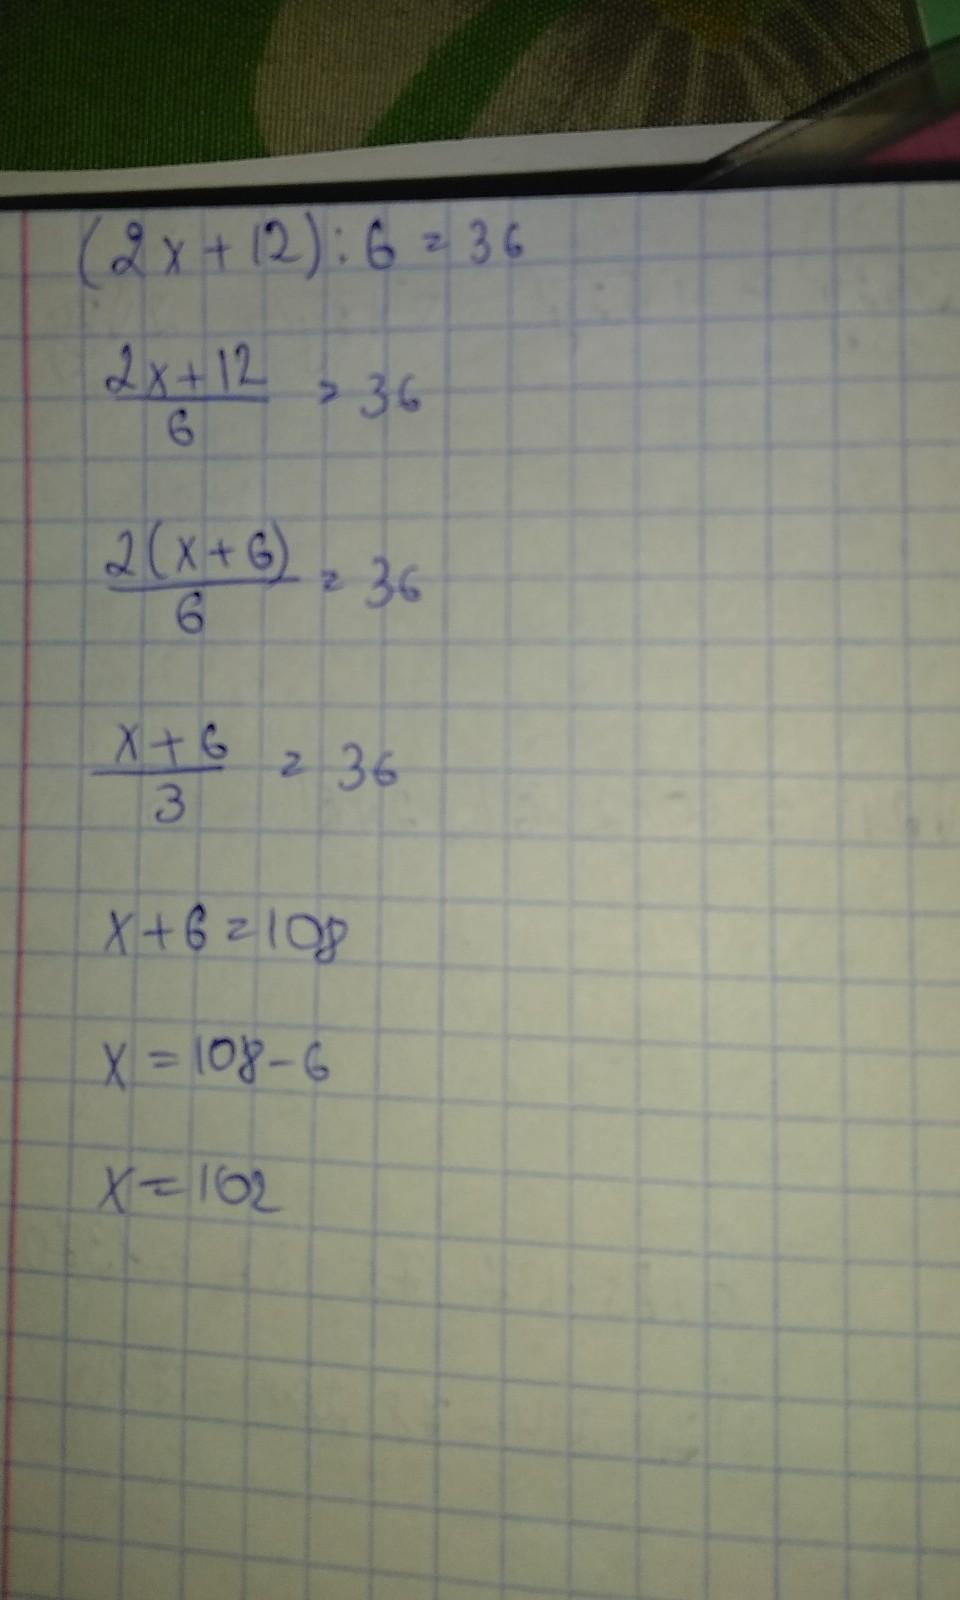 (2x+12):6=36
2x+12/6 = 36
2(x+6)/6 = 36
x+6/3 = 36
x+6=108
x=108-6
x=102